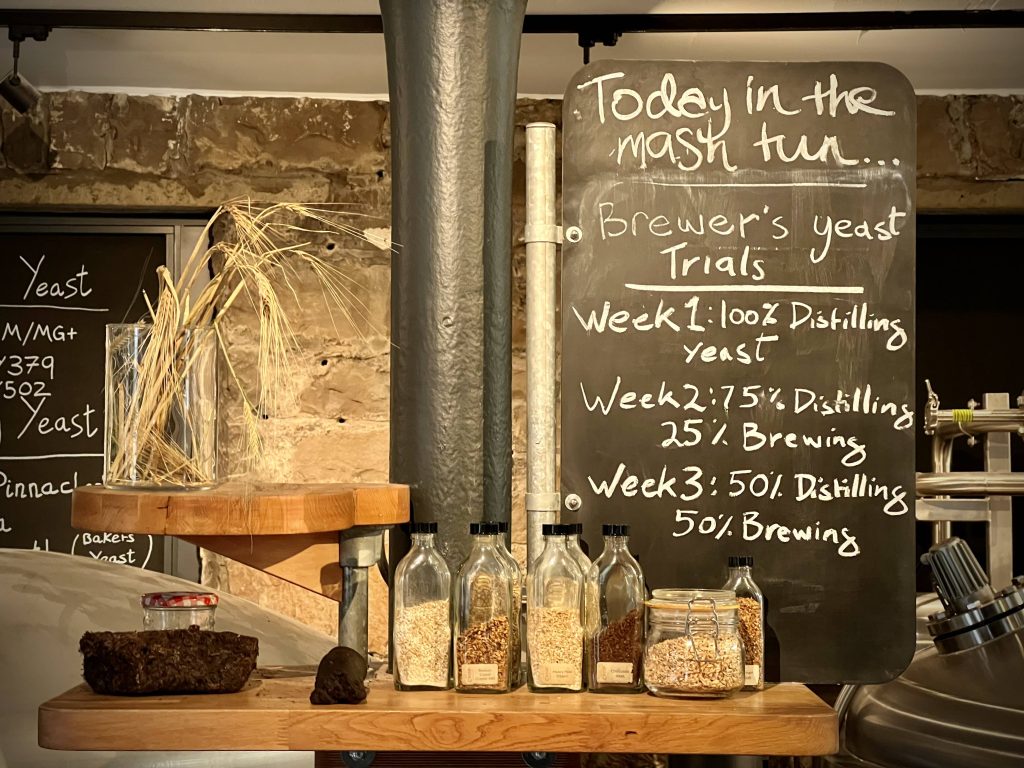 Today in the
mash tun...
Brewer's yeast
Trials
Week 1: 100% Distilling
yeast
Week 2: 75% Distilling
25% Brewing
Week 3: 50% Distilling
50% Brewing
Yeast
M/MG+
379
502
Yeast
Pinnacle
(Bakers
Yeast)